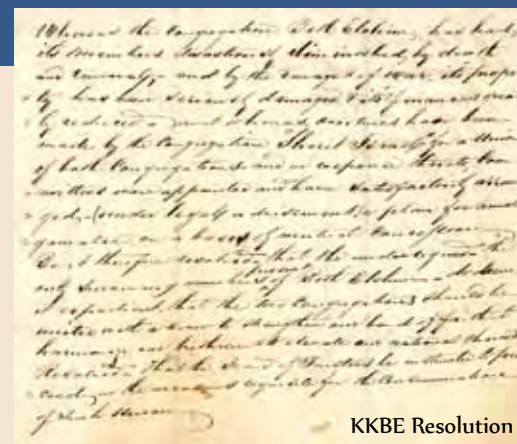 Whereas the Congregation Beth Elohim, has had,
its members diminished, by death
and and by the ravages of war, its prop
ty has been seriously damaged & its finances grea
ly reduced have been
made by the Congregation Shearit Israel for a Union
of both Congregations and in response thereto Com
mittees were appointed and have satisfactorily arran
ged, (under legal advisement) a plan for amal
gamation, on a basis of mutual concession
Be it therefore resolved that the undersigned the
only surviving members of Beth Elohim
it expedient, that the two Congregations should be
united with a view to strengthen our band of
harmonize our brethren & elevate our national
Resolved That the Board of Trustees be instructed to pro
ceed, in the requisite for the Consummation
of such Union
KKBE Resolution